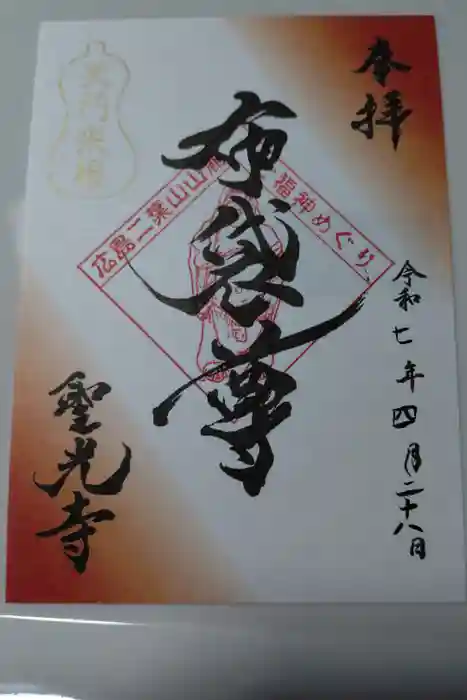 奉拝
令和七年四月二十八日
布袋尊
広島二葉山山
福神めぐり
聖光寺